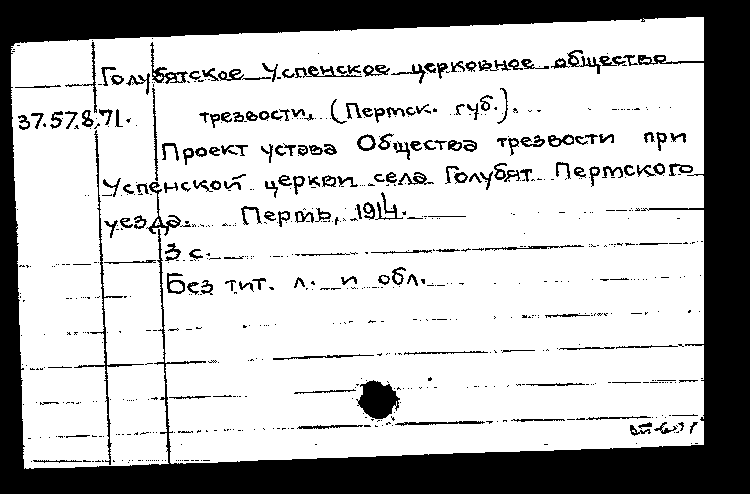 Голубятское Успенское церковное общество
37.57.8.71. трезвости, (Пермск. губ.).
Проект устава Общества трезвости при
Успенской церкви села Голубят Пермского
уезда. Пермь, 1914.
3 с.
Без тит. л. и обл.